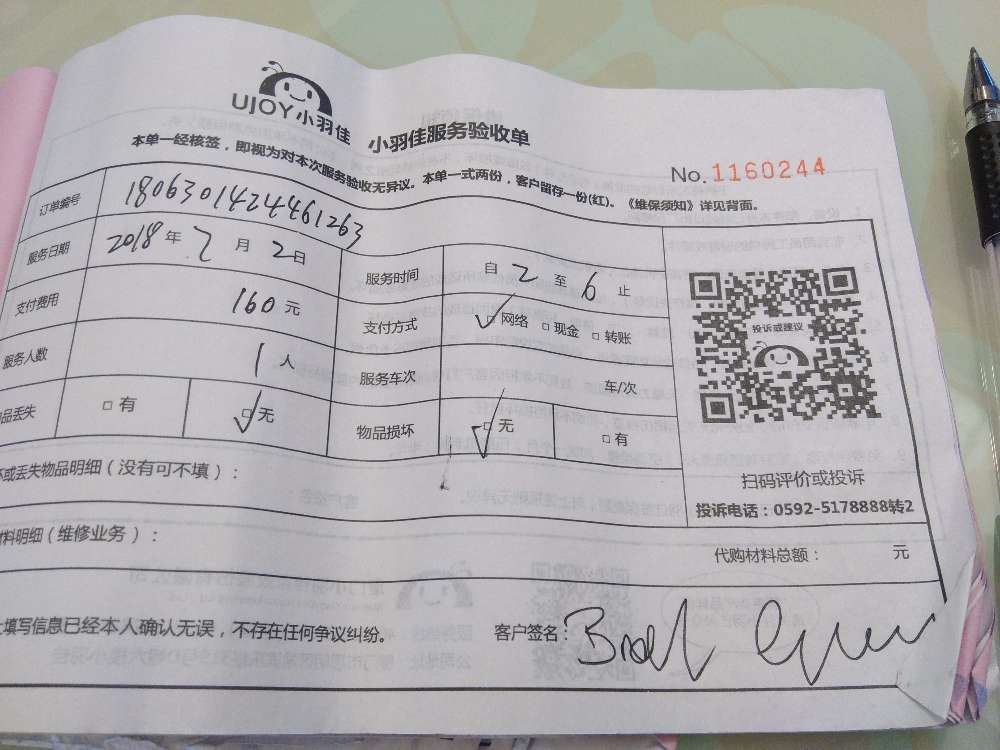 UJOY小羽佳 小羽佳服务验收单
本单一经核签，即视为对本次服务验收无异议。本单一式两份，客户留存一份(红)。《维保须知》详见背面。
No. 1160244
订单编号 1806301424461263
服务日期 2018年7月2日 服务时间 自2至6止
支付费用 160元 支付方式 ☑网络 □现金 □转账
服务人数 1人 服务车次 车/次
品丢失 □有 ☑无 物品损坏 ☑无 □有
投诉或建议
扫码评价或投诉
投诉电话：0592-5178888转2
坏或丢失物品明细（没有可不填）：
材料明细（维修业务）：
代购材料总额： 元
上填写信息已经本人确认无误，不存在任何争议纠纷。 客户签名：